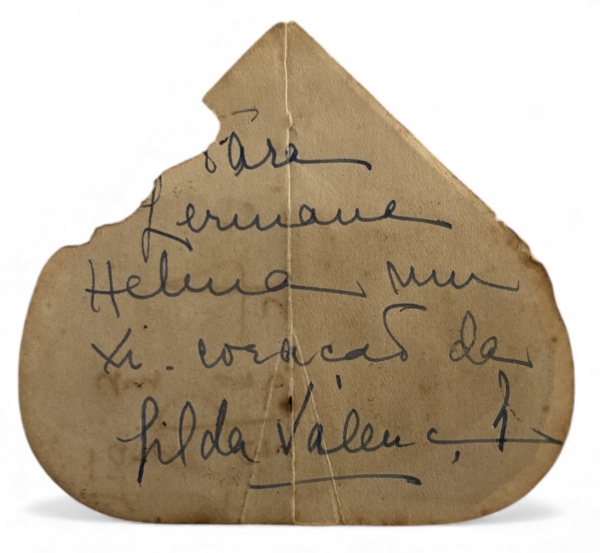 Para
Germana
Helena num
xi-coração da
Gilda Valença